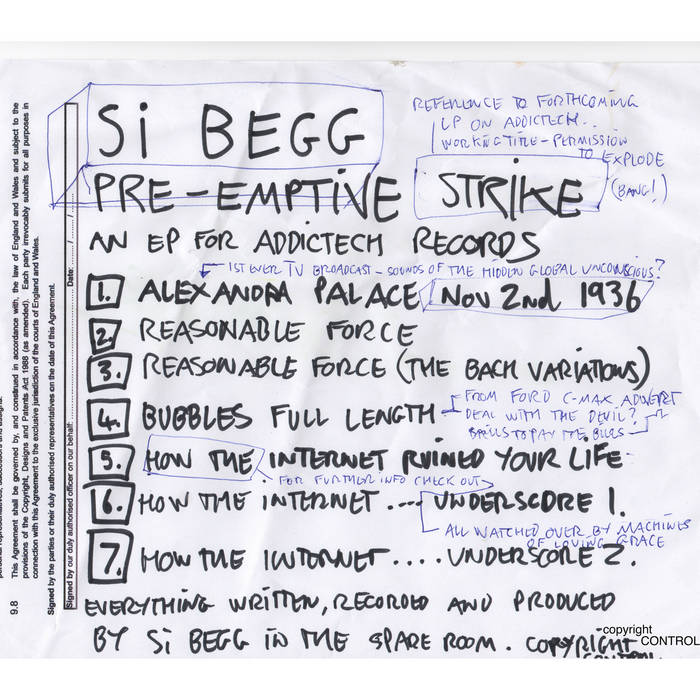 Si BEGG
PRE-EMPTIVE STRIKE
REFERENCE TO FORTHCOMING
LP ON ADDICTECH..
WORKING TITLE - PERMISSION
TO EXPLODE
(BANG!)
AN EP FOR ADDICTECH RECORDS
1ST EVER TV BROADCAST - SOUNDS OF THE HIDDEN GLOBAL UNCONSCIOUS?
1. ALEXANDRA PALACE NOV 2nd 1936
2. REASONABLE FORCE
3. REASONABLE FORCE (THE BACH VARIATIONS)
4. BUBBLES FULL LENGTH
FROM FORD C-MAX ADVERT
DEAL WITH THE DEVIL?
SKILLS TO PAY THE BILLS
5. HOW THE INTERNET RUINED YOUR LIFE
FOR FURTHER INFO CHECK OUT
6. HOW THE INTERNET .... UNDERSCORE 1.
ALL WATCHED OVER BY MACHINES
OF LOVING GRACE
7. HOW THE INTERNET.... UNDERSCORE 2.
EVERYTHING WRITTEN, RECORDED AND PRODUCED
BY Si BEGG IN THE SPARE ROOM. COPYRIGHT
CONTROL
copyright
CONTROL
9.8 This Agreement shall be governed by, and construed in accordance with, the law of England and Wales and subject to the
provisions of the Copyright, Designs and Patents Act 1988 (as amended). Each party irrevocably submits for all purposes in
connection with this Agreement to the exclusive jurisdiction of the courts of England and Wales.
Signed by the parties or their duly authorised representatives on the date of this Agreement.
Signed by our duly authorised officer on our behalf: Date: / /